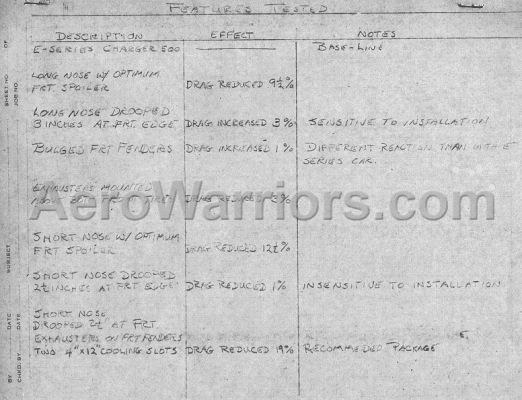 FEATURES TESTED
DESCRIPTION EFFECT NOTES
E-SERIES CHARGER 500 BASE-LINE
LONG NOSE W/ OPTIMUM
FRT. SPOILER DRAG REDUCED 9½%
LONG NOSE DROOPED
3 INCHES AT FRT EDGE DRAG INCREASED 3% SENSITIVE TO INSTALLATION
BULGED FRT FENDERS DRAG INCREASED 1% DIFFERENT REACTION THAN WITH E
SERIES CAR.
EXHAUSTERS MOUNTED
ABOVE FRT TIRES DRAG REDUCED %
AeroWarriors.com
SHORT NOSE W/ OPTIMUM
FRT SPOILER DRAG REDUCED 12½%
SHORT NOSE DROOPED
2½ INCHES AT FRT EDGE DRAG REDUCED 1% INSENSITIVE TO INSTALLATION
SHORT NOSE
DROOPED 2½ AT FRT
EXHAUSTERS ON FRT FENDERS
TWO 4"x12" COOLING SLOTS DRAG REDUCED 19% RECOMMEDED PACKAGE
SHEET NO. OF
JOB NO.
SUBJECT
BY DATE
CHKD. BY DATE